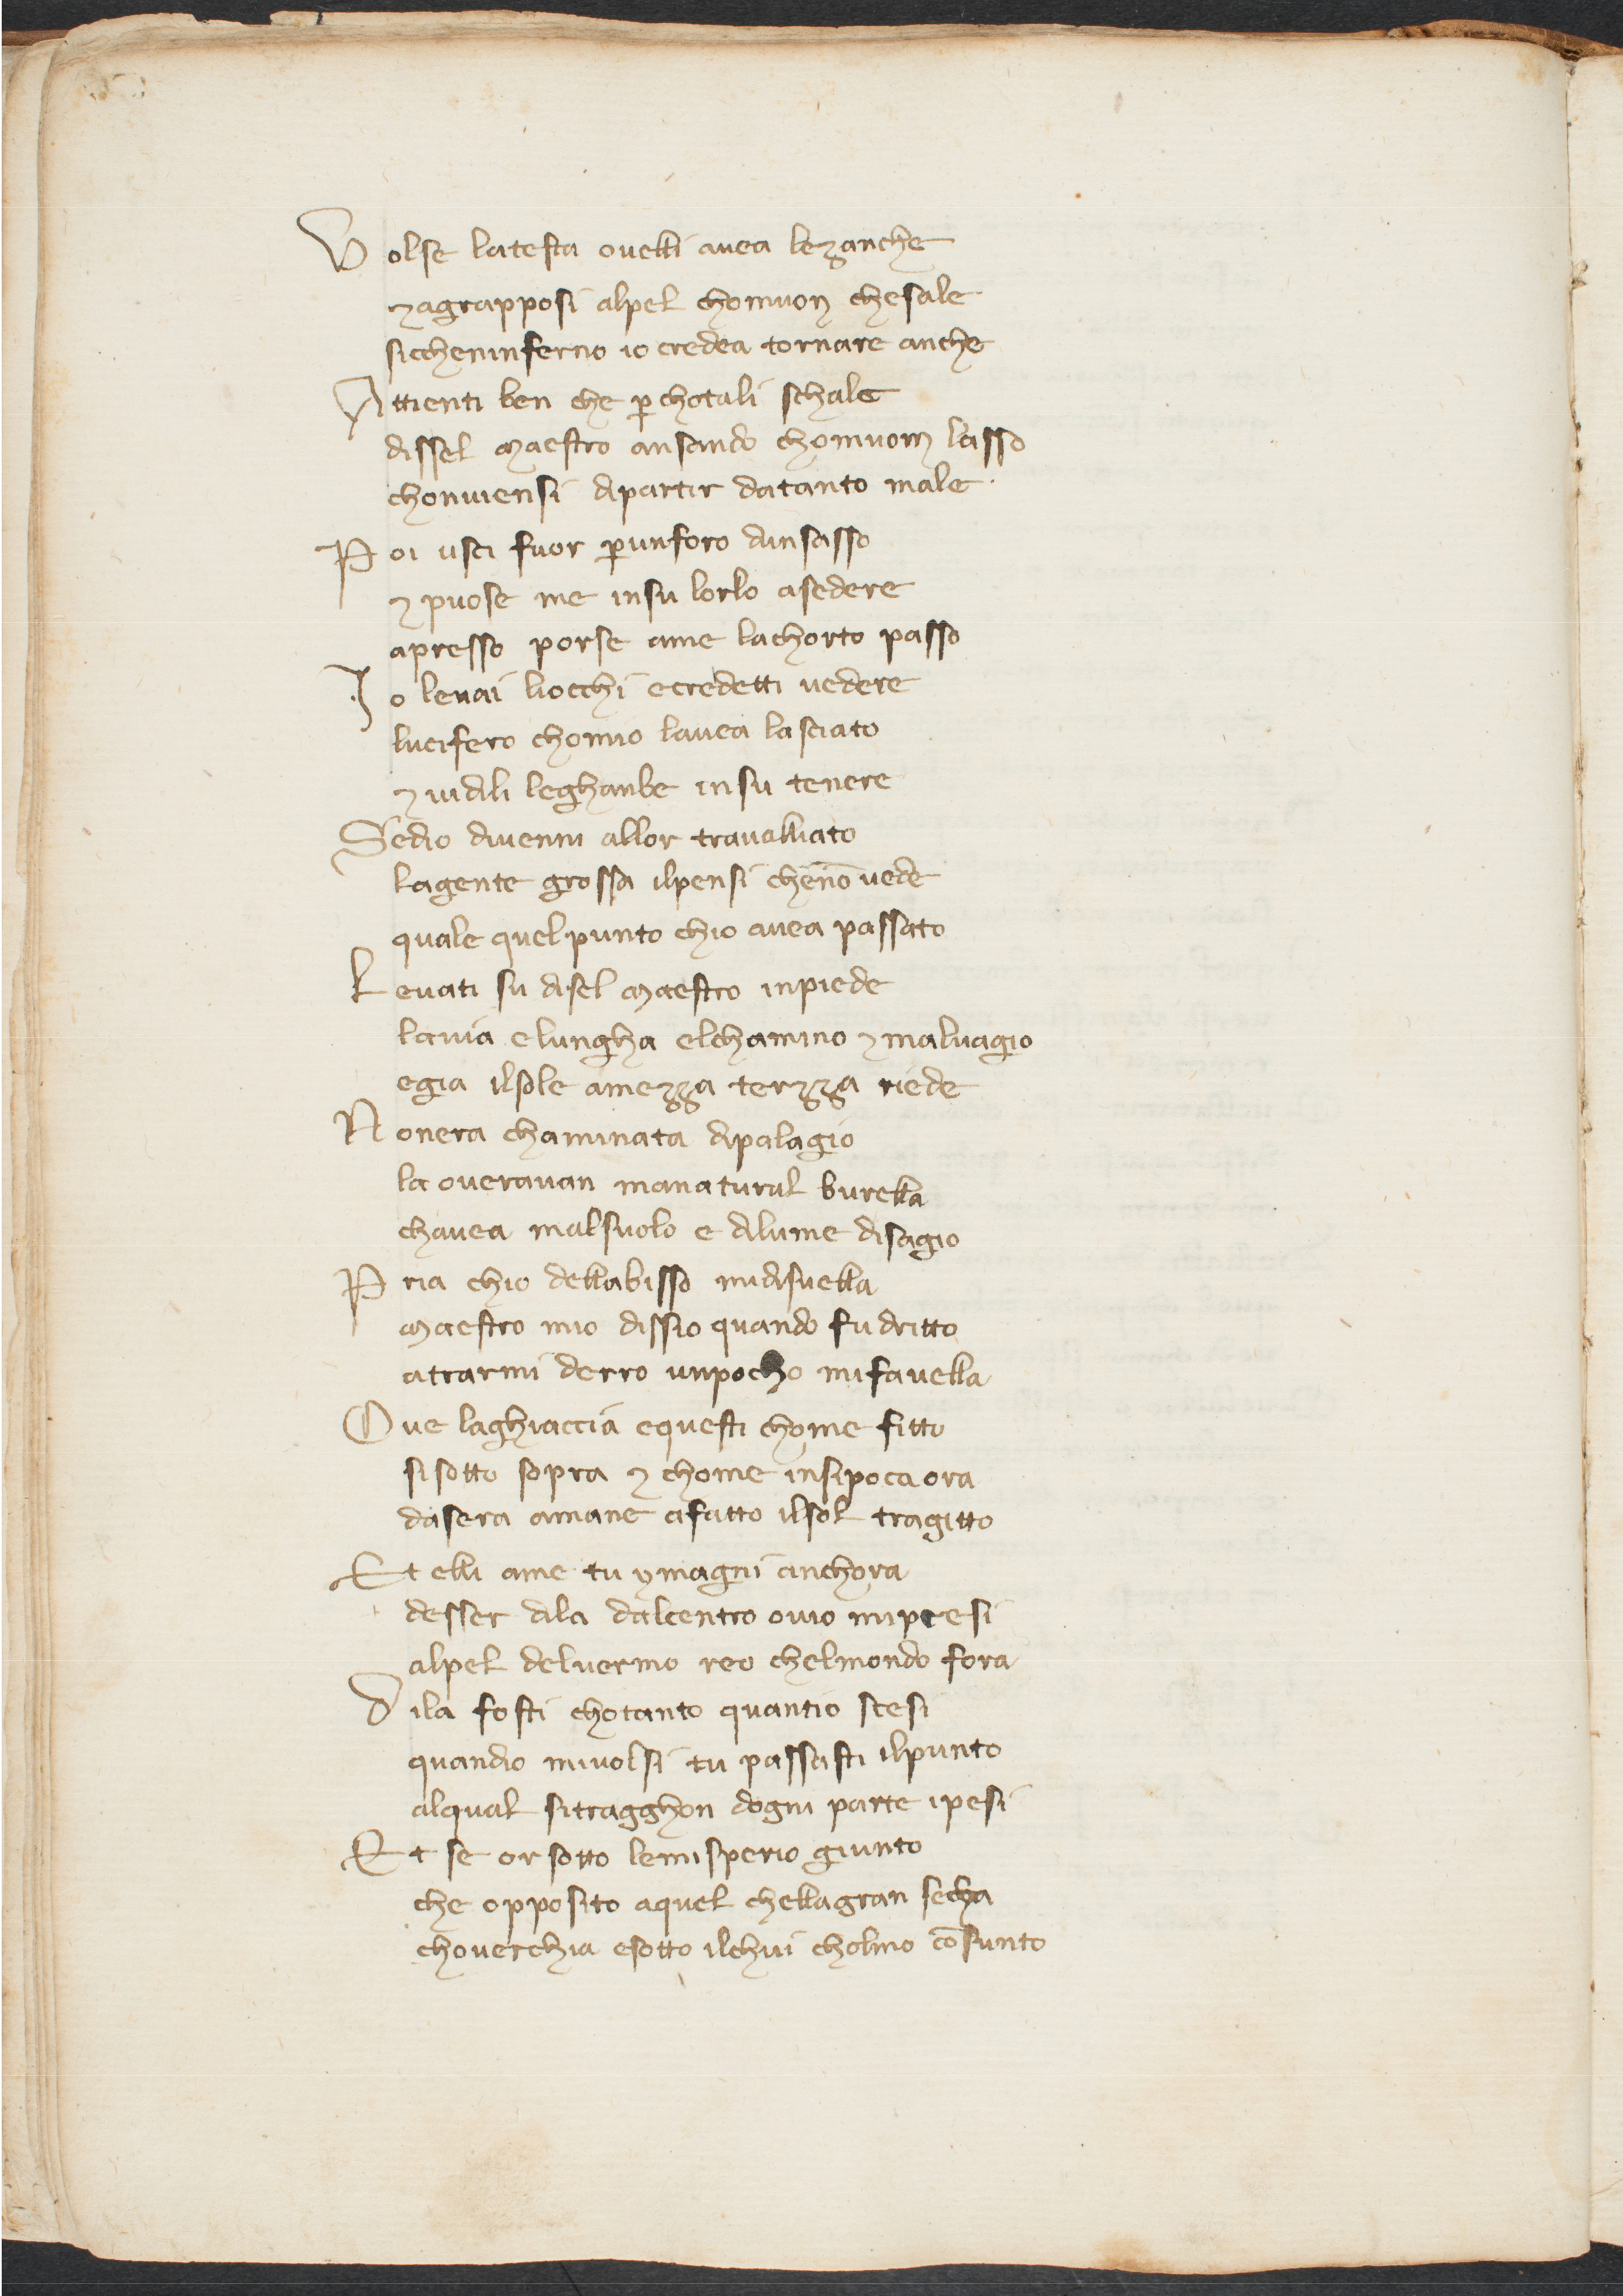 Volse latesta ovelli avea lezanche
⁊ agrapposi alpel chomuon chesale
siccheninferno io credea tornare anche
Attienti ben che ꝑ chotali schale
dissel maestro ansando chomuom lasso
chonviensi dipartir datanto male
Poi usci fuor ꝑunforo dunsasso
⁊ puose me insu lorlo asedere
apresso porse ame lachorto passo
Io levai liocchi ecredetti vedere
lucifero chomio lavea lasciato
⁊ vidili leghanbe insu tenere
Sedio divenni allor travalliato
lagente grossa ilpensi chenō vede
quale quelpunto chio avea passato
Levati su disel maestro inpiede
lavia elungha elchamino ⁊ malvagio
egia ilsole amezza terzza riede
Nonera chaminata dipalagio
la overavan manatural burella
chavea malsuolo e dilume disagio
Pria chio dellabisso midisvella
maestro mio dissio quando fudritto
atrarmi derro unpocho mifavella
Ove laghiaccia equesti chome fitto
sisotto sopra ⁊ chome insipoca ora
dasera amane afatto ilsol tragitto
Et elli ame tu ymagini anchora
desser dila dalcentro ovio mipresi
alpel delvermo reo chelmondo fora
Dila fosti chotanto quantio scesi
quandio mivolsi tu passasti ilpunto
alqual sitragghon dogni parte ipesi
Et se or sotto lemisperio giunto
che opposito aquel chellagran secha
choverchia esotto ilchui cholmo cōsunto